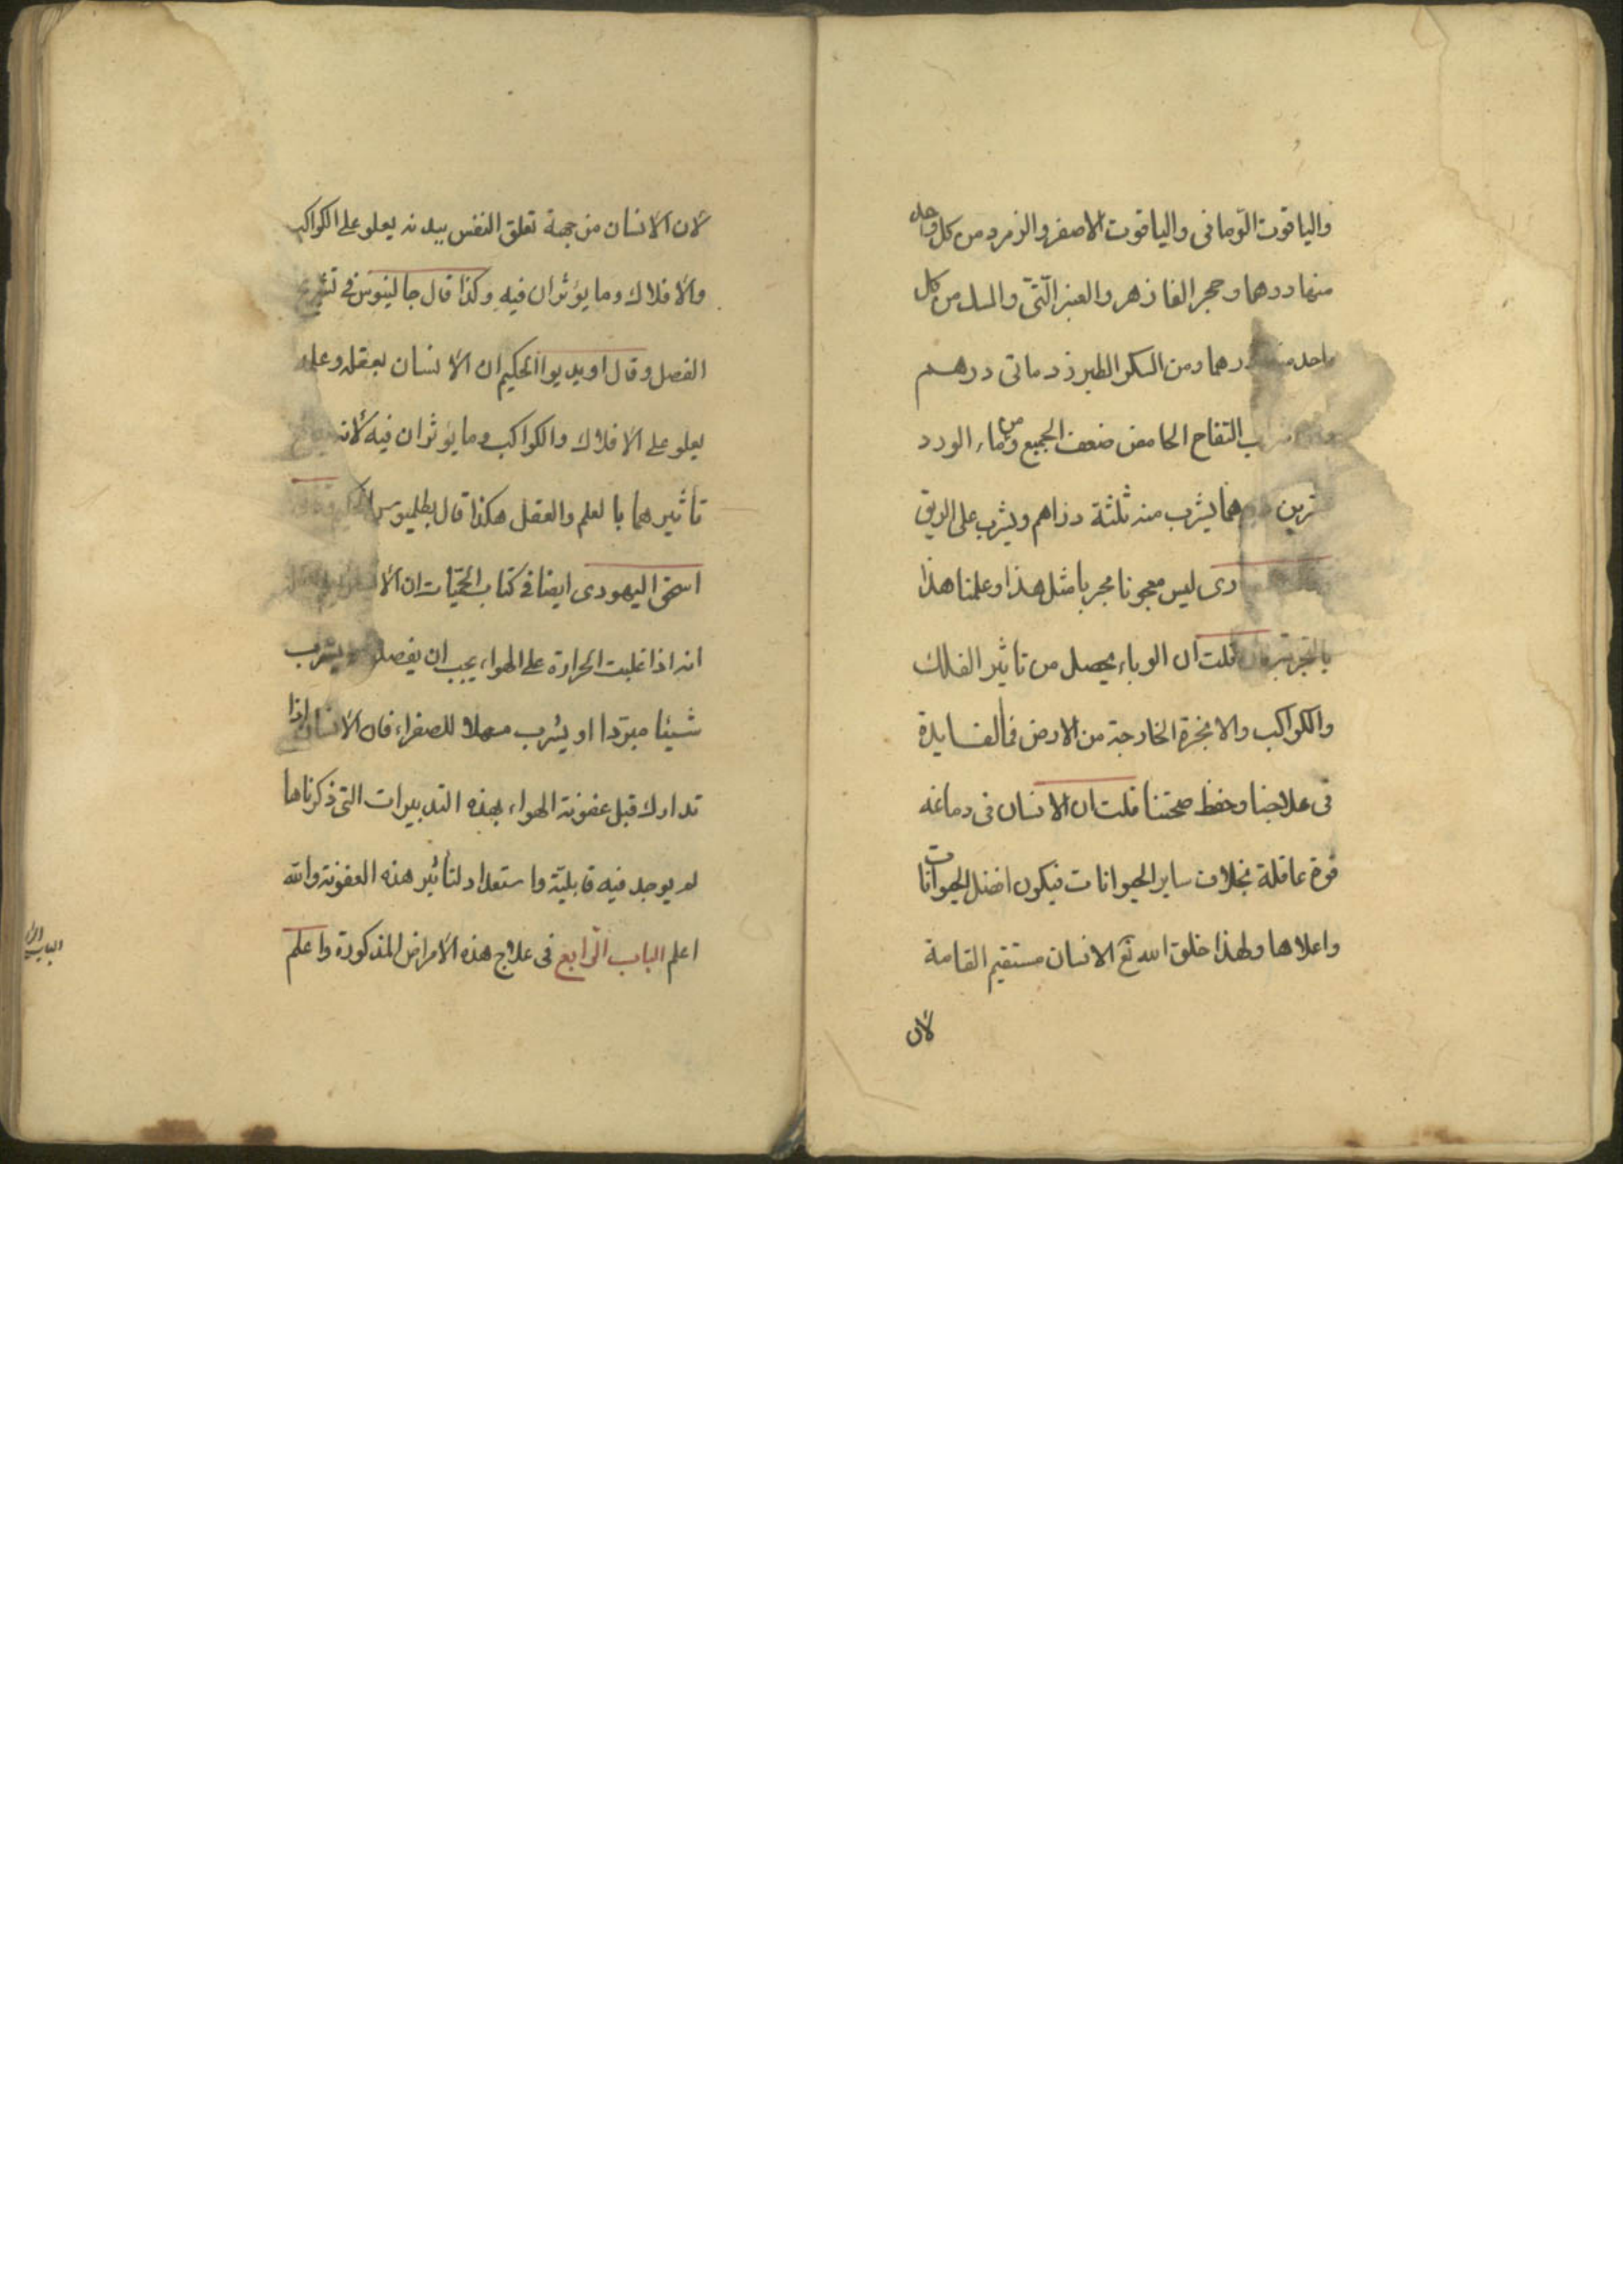 والياقوت الرماني والياقوت الاصفر والزمرد من كل واحد
منها درهما وحجر الفاذهر والعنبر والمسك من كل
واحد منها درهما ومن السكر الطبرزد ماتى درهم
التفاح الحامض ضعف الجميع ومن ماء الورد
يشرب منه ثلثة دراهم ويشرب على الريق
ليس معجونا مجربا مثل هذا وعلمنا هذا
بالتجربة فان قلت ان الوباء يحصل من تاثير الفلك
والكواكب والابخرة الخارجة من الارض فما الفايدة
فى علاجنا وحفظ صحتنا قلت ان الانسان فى دماغه
قوة عاقلة بخلاف ساير الحيوانات فيكون افضل الحيوانات
واعلاها ولهذا خلق الله تع الانسان مستقيم القامة
لأن
لأن الأنسان من جهة تعلق النفس ببدنه يعلو على الكواكب
والأفلاك وما يؤثران فيه وكذا قال جالينوس فى تشريح
الفصل وقال الحكيم ان الأنسان بعقله وعلمه
يعلو على الأفلاك والكواكب وما يؤثران فيه لأنه
تأثيرهما بالعلم والعقل هكذا قال بطلميوس
اسحق اليهودى ايضا فى كتاب الحميات ان
انه اذا غلبت الحرارة على الهواء يجب ان يفصد ويشرب
شيئا مبردا او يشرب مسهلا للصفراء فان الأنسان اذا
تدارك قبل عفونة الهواء بهذه التدبيرات التى ذكرناها
لم يوجد فيه قابلية واستعداد لتأثير هذه العفونة والله
اعلم الباب الرابع فى علاج هذه الأمراض المذكورة واعلم